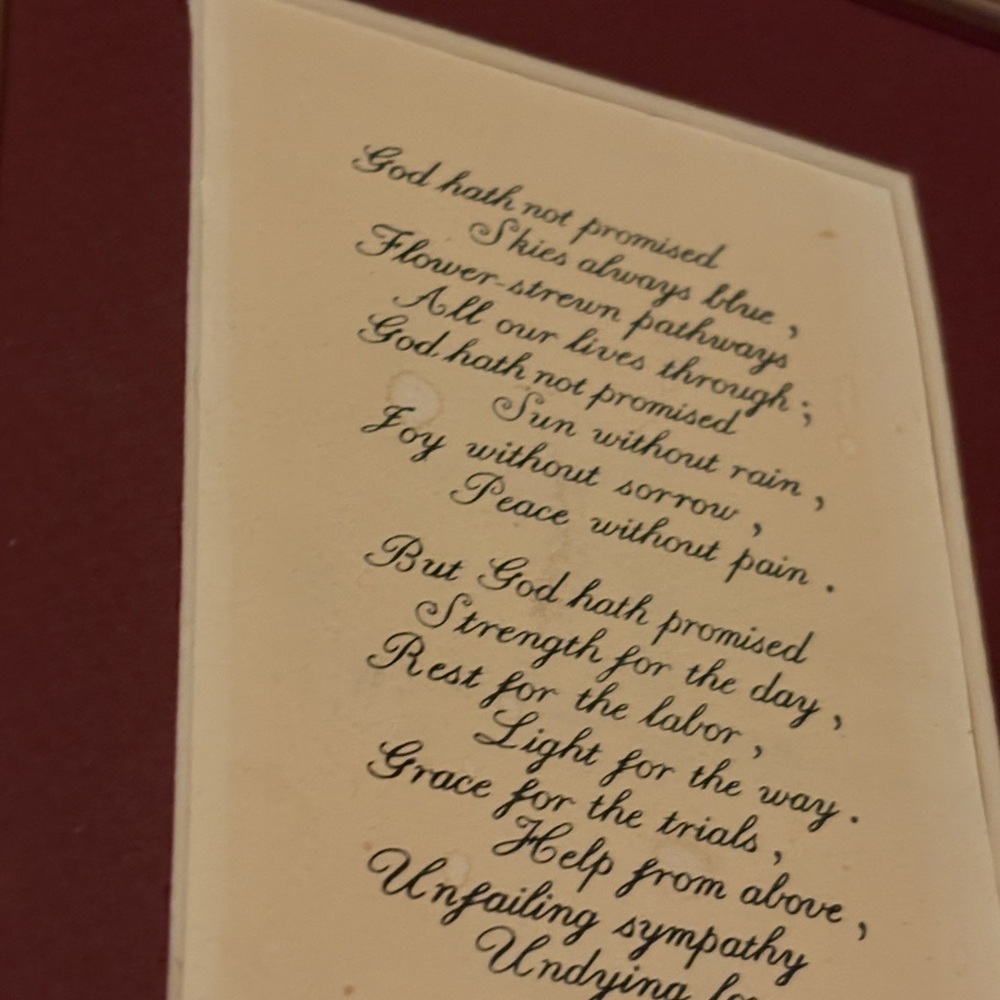 God hath not promised
Skies always blue,
Flower-strewn pathways
All our lives through;
God hath not promised
Sun without rain,
Joy without sorrow,
Peace without pain.
But God hath promised
Strength for the day,
Rest for the labor,
Light for the way.
Grace for the trials,
Help from above,
Unfailing sympathy
Undying